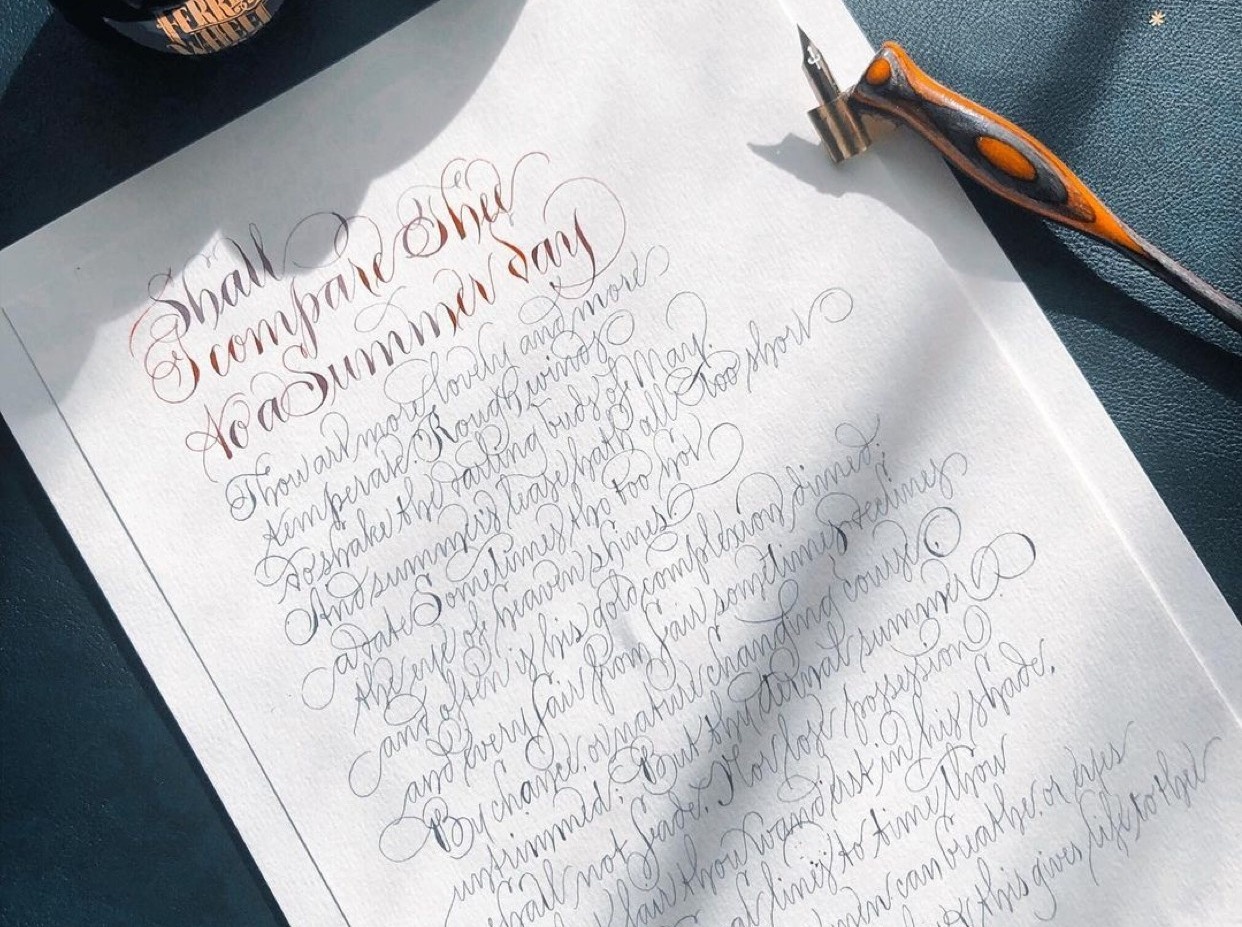 FERRIS
WHEEL
Shall
I compare Thee
to a Summer day
Thou art more lovely and more
temperate. Rough winds
to shake the darling buds of May.
And summers lease hath all too short
a date Sometimes tho too hot
the eye of heaven shines
and often is his gold complexion dimmed.
and every fair from fair sometimes declines
By chance, or nature changing course
untrimmed; But thy eternal summer
shall not fade. Nor lose possession
fair thou
in his shade.
lines to time thou
men can breathe. or eyes
this gives life to thee